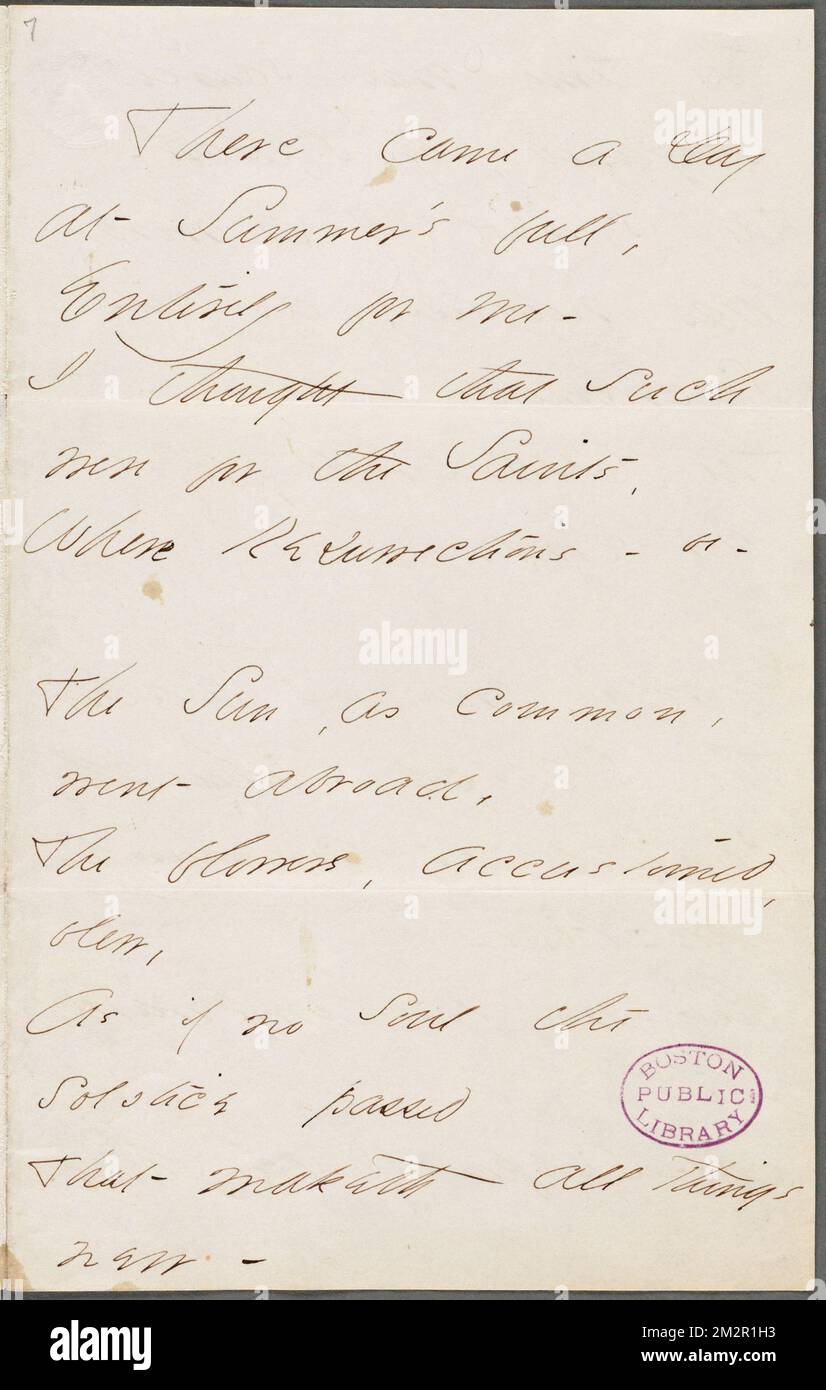 7
There came a day
at Summer's full,
Entirely for me -
I thought that such
were for the Saints,
Where Resurrections - be -
The Sun, as common,
went abroad,
The flowers, accustomed,
blew,
As if no Soul the
Solstice passed
BOSTON
PUBLIC
LIBRARY
That maketh all things
new -
alamy
Image ID: 2M2R1H3
www.alamy.com